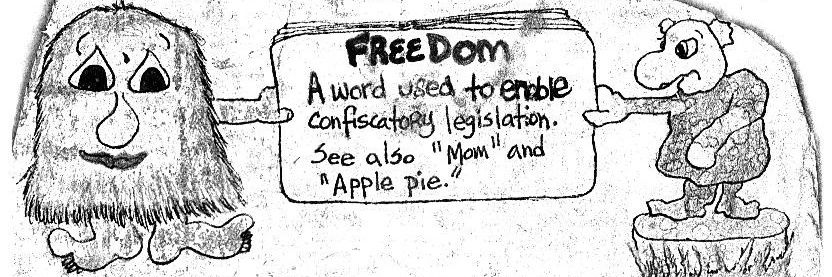 FREEDOM
A word used to enable
confiscatory legislation.
See also "Mom" and
"Apple pie."